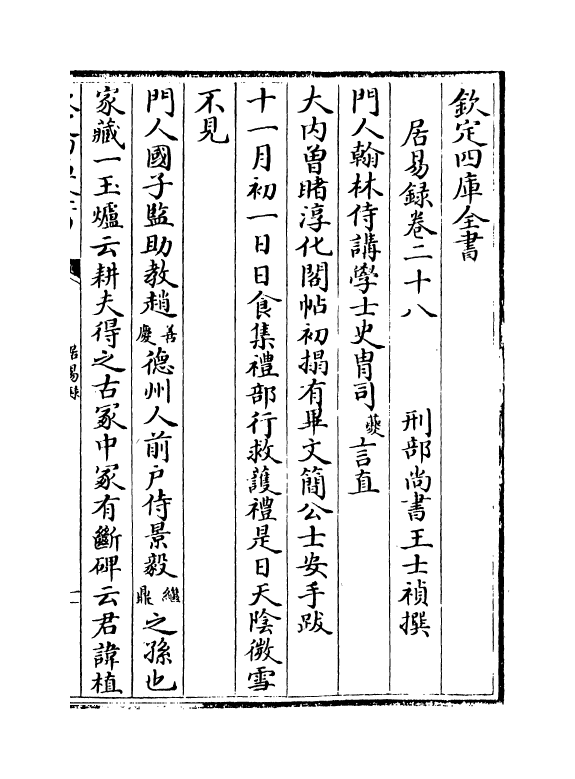 欽定四庫全書
居易録卷二十八　刑部尚書王士禎撰
門人翰林侍講學士史胄司夔言直
大内曽睹淳化閣帖初搨有畢文簡公士安手跋
十一月初一日日食集禮部行救護禮是日天陰微雪
不見
門人國子監助教趙善慶德州人前户侍景毅繼鼎之孫也
家藏一玉爐云耕夫得之古冢中冢有斷碑云君諱植
居易録